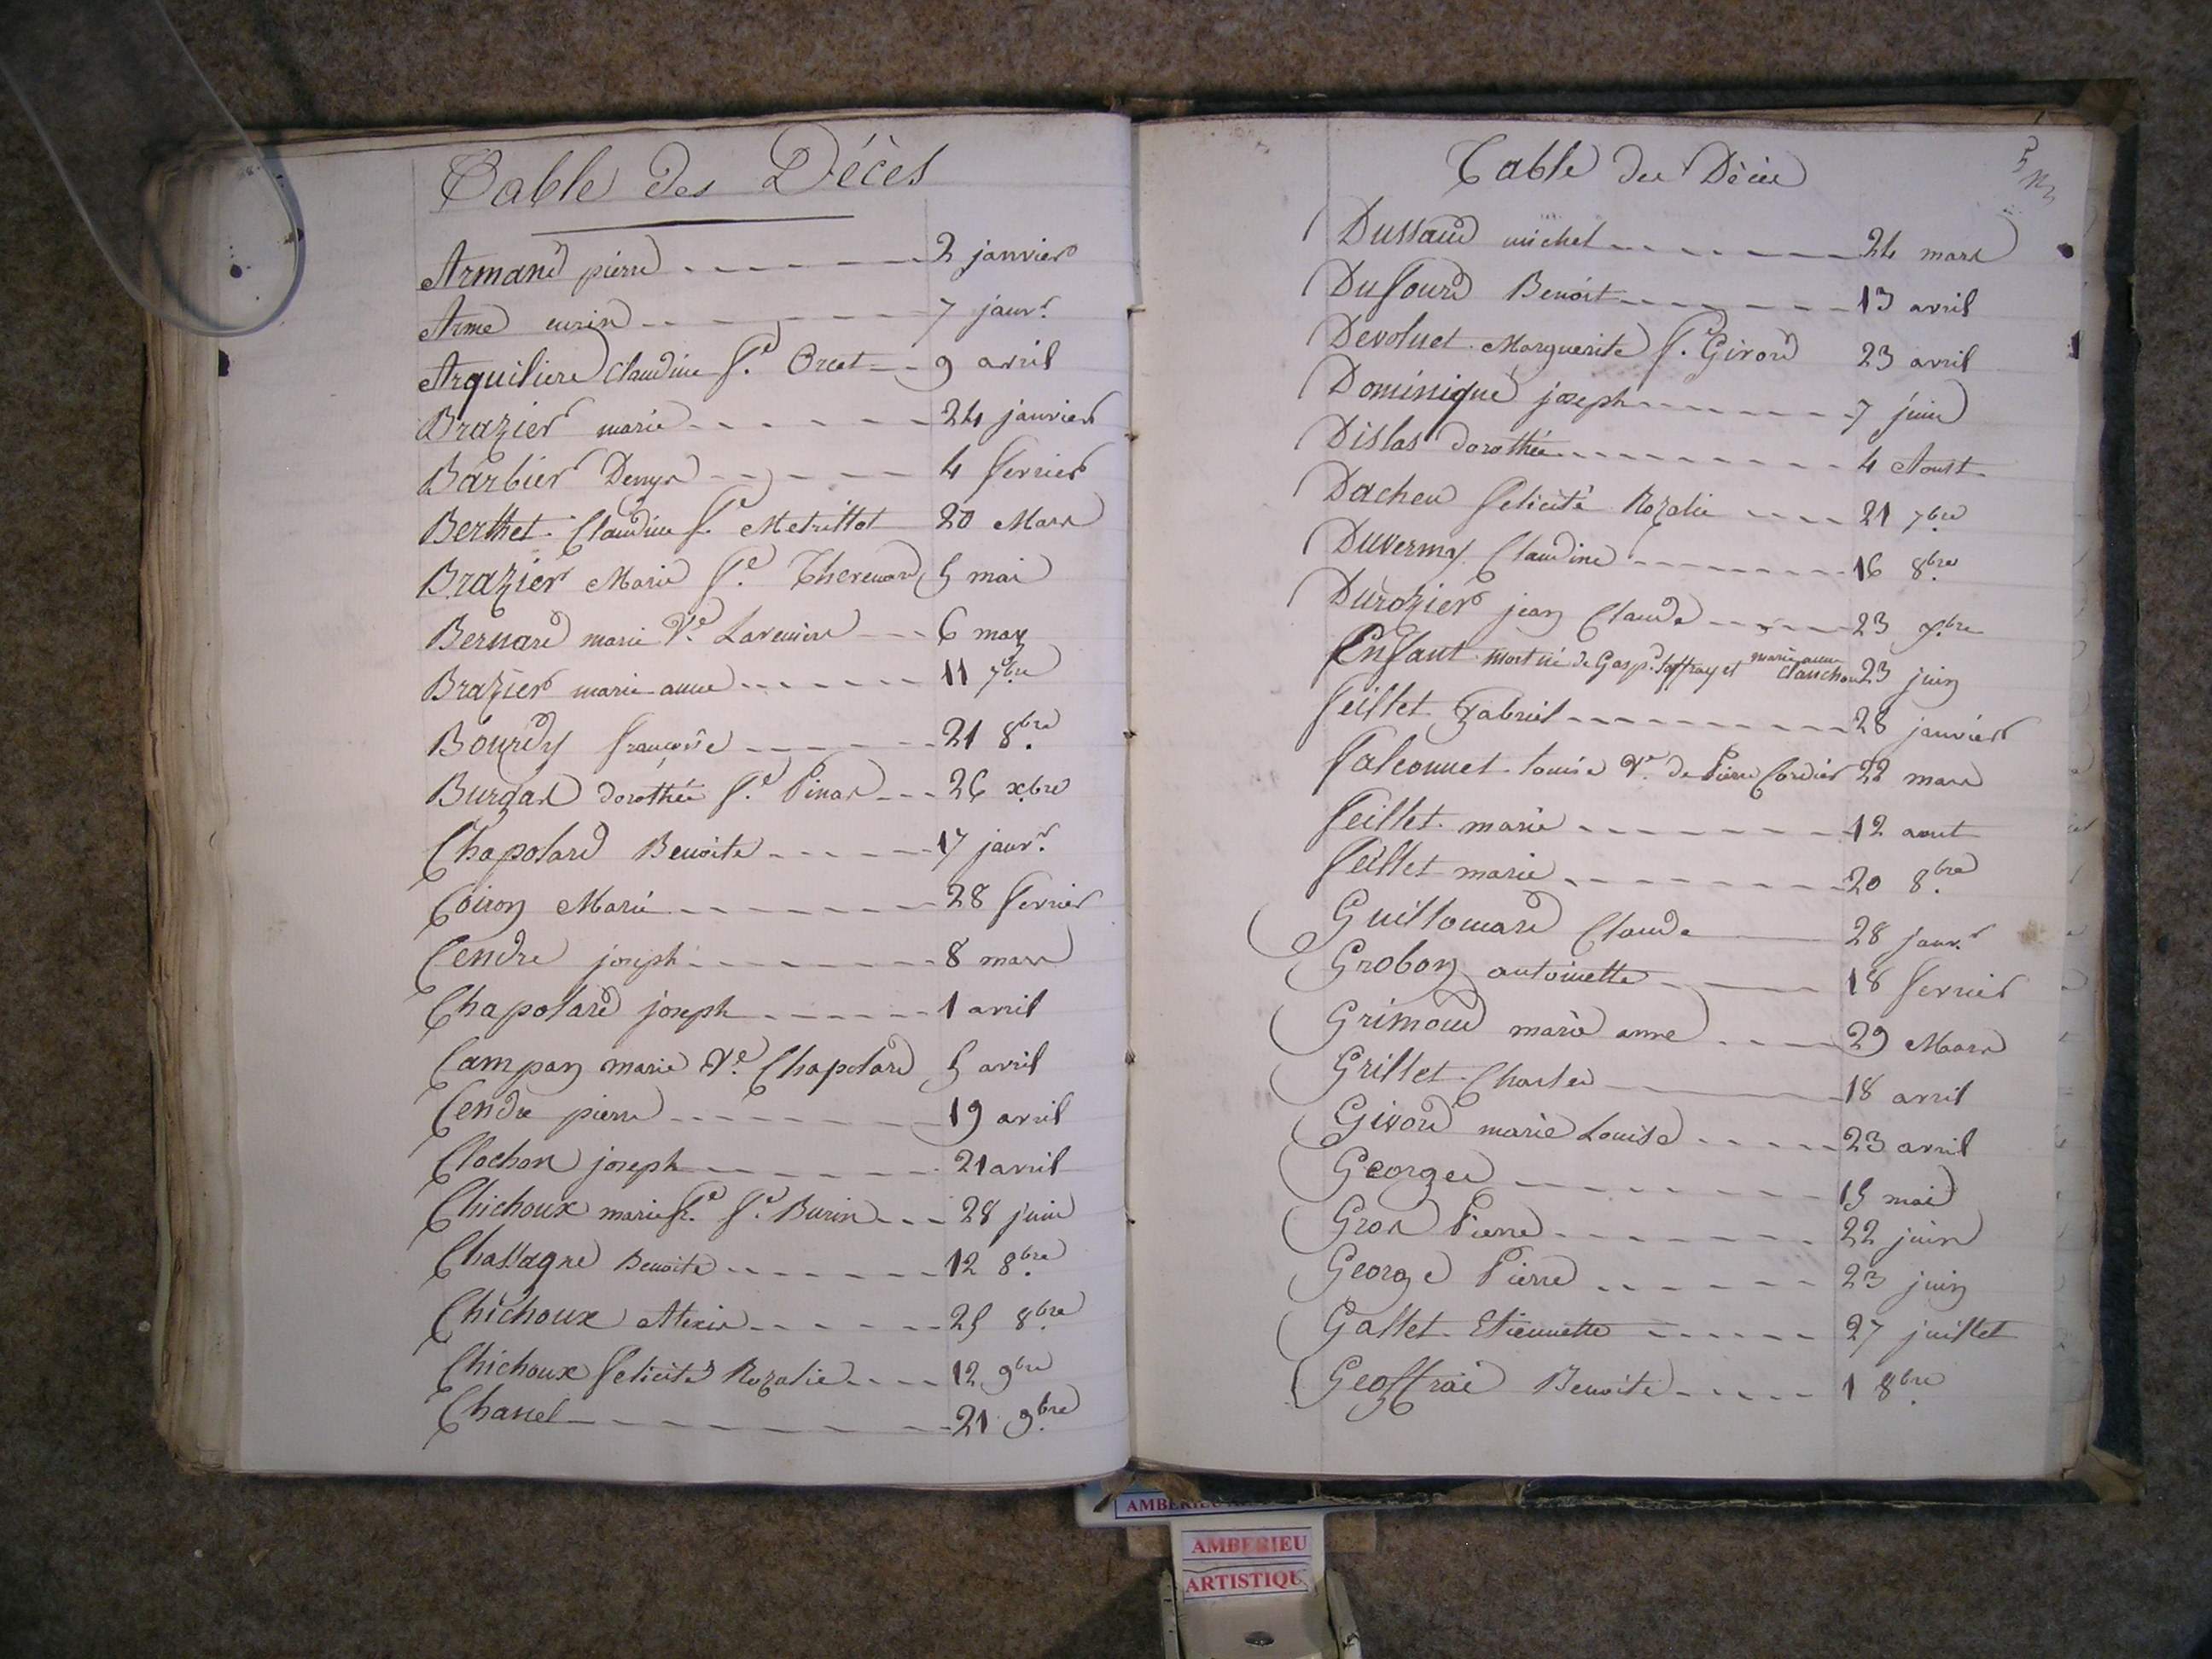 Table des Décès
Armand pierre 2 janvier
Arme 7 janvr.
Arquiliere Claudine fe. Orcet 9 avril
Brazier marie 24 janvier
Barbier Denys 4 fevrier
Berthet Claudine fe. Metrillot 20 Mars
Brazier Marie fe. Thevenard 5 mai
Bernard marie Ve. 6 may
Brazier marie anne 11 7bre
Bourdy françoise 21 8bre
Burgas dorothée fe. Pinas 26 xbre
Chapolard Benoite 17 janvr.
Coiron Marie 28 fevrier
Cendre joseph 8 mars
Chapolard joseph 1 avril
Campan marie Ve. Chapolard 5 avril
Cendre pierre 19 avril
Clochon joseph 21 avril
Chichoux marie fse. fe. Burin 28 juin
Chassagne Benoite 12 8bre
Chichoux Alexis 25 8bre
Chichoux felicité Rozalie 12 9bre
Chanel 21 9bre
Table des Décès
Dussaud michel 24 mars
Dufourd Benoit 13 avril
Devoluet Marguerite fe. Girord 23 avril
Dominique joseph 7 juin
Dislas dorothée 4 Aoust
Dacheu felicité Rozalie 21 7bre
Duvernay Claudine 16 8bre
Durozier jean Claude 23 xbre
Enfant mort né de Gaspd. Joffray et marie anne Clauchon 23 juin
feillet gabriel 28 janvier
falconnet Louise Ve. de Pierre Cordier 22 mars
feillet marie 12 aout
feillet marie 20 8bre
Guillomard Claude 28 janvr.
Grobon antoinette 18 fevrier
Grimoud marie anne 29 Mars
Grillet Charles 18 avril
Givord marie Louise 23 avril
Georges 15 mai
Gros Pierre 22 juin
George Pierre 23 juin
Gallet Etiennette 27 juillet
Geoffrai Benoite 1 8bre
AMBERIEU
ARTISTIQU